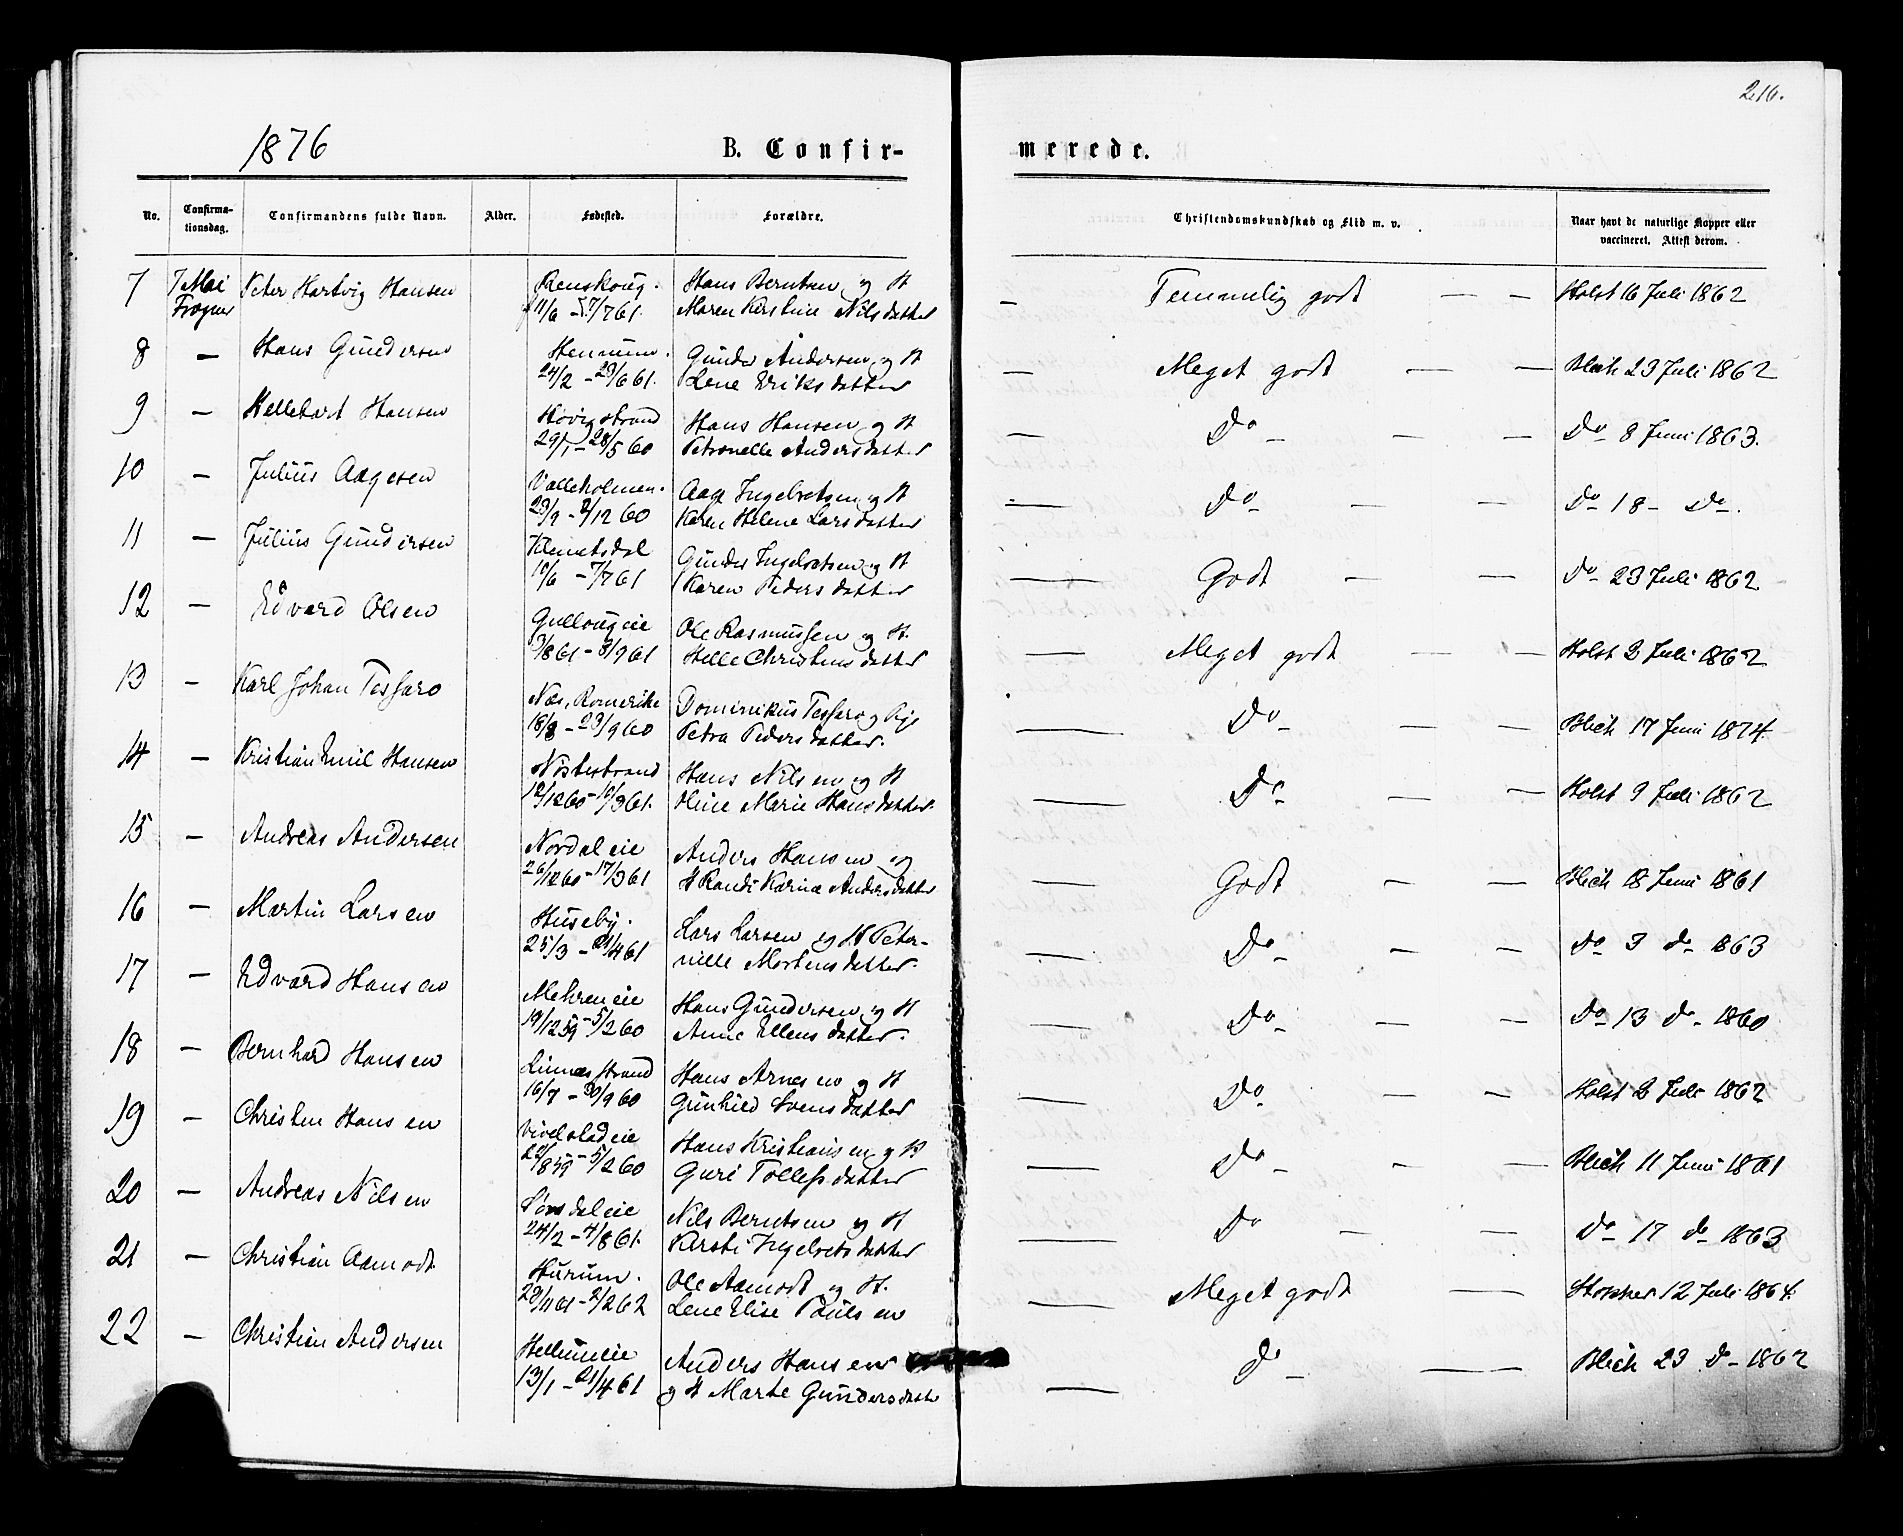 216.
1876 B. Confir- merede.
No. Confirma-tionsdag. Confirmandens fulde Navn. Alder. Fødested. Forældre. Christendomskundskab og Flid m. v. Naar havt de naturlige Kopper eller vaccineret. Attest derom.
7 7 Mai Peter Hartvig Hansen Hans Berntsen og H Temmelig godt — — Holst 16 Juli 1862
Frogner 11/6 7/7 61. Maren Kirstine Nilsdatter —
8 — Hans Gundersen Hennum. Gunder Andersen og H Meget godt — — Blich 23 Juli 1862
24/2 – 23/6 61. Lene Eriksdatter —
9 — Hellebart Hansen Høvigstrand Hans Hansen og H Do — — Do 8 Juni 1863.
29/1 – 28/5 60 Petronelle Andersdatter —
10 — Julius Aagesen Valleholmen. Aage Ingebretsen og H Do — — Do 18 – Do.
23/9 – 2/12 60 Karen Helene Larsdatter —
11 — Julius Gundersen Klemetsdal Gunder Ingebretsen og H Godt — — Do 23 Juli 1862
10/6 – 7/7 61 Karen Pedersdatter —
12 — Edvard Olsen Gullougeie Ole Rasmussen og H. Meget godt — — Holst 2 Juli 1862
3/8 61 – 8/9 61 Helle Christensdatter —
13 — Karl Johan Tessaro Næs, Romerike Dominikus Tessaro og Pige Do — — Blich 17 Juni 1874.
18/8 – 23/9 60 Petra Pedersdatter. —
14 — Kristian Emil Hansen Nøstestrand Hans Nilsen og H Do — — Holst 9 Juli 1862
12/12 60 – 10/3 61. Oline Marie Hansdatter —
15 — Andreas Andersen Nordaleie Anders Hansen og Godt — — Blich 18 Juni 1861
26/12 60 – 17/3 61 H Randi Karine Andersdatter —
16 — Martin Larsen Huseby. Lars Larsen og H Peter- Do — — Do 3 do 1863
25/3 – 21/4 61 nille Mortensdatter. —
17 — Edvard Hansen Mehreneie Hans Gundersen og H Do — — Do 13 do 1860
19/12 59 – 5/2 60 Anne Ellensdatter. —
18 — Bernhard Hansen Linnesstrand Hans Arnesen og H Do — — Holst 2 Juli 1862
16/7 – 30/9 60 Gunhild Svensdatter —
19 — Christen Hansen Vivelstadeie Hans Kristiansen og H Do — — Blich 11 Juni 1861
22/8 59 – 5/2 60 Guri Tollefsdatter —
20 — Andreas Nilsen Sørsdaleie Nils Berntsen og H Do — — Do 17 do 1863
24/2 – 4/8 61. Kirsti Ingebretsdatter —
21 — Christian Aamodt Hurum. Ole Aamodt og H. Meget godt — 12 Juli 1864.
22/11 61 – 2/2 62 Lene Elise Paulsen —
22 — Christian Andersen Hellumeie Anders Hansen Do — Blich 23 Do 1862
13/1 – 21/4 61 og H Marte Gundersdatte —